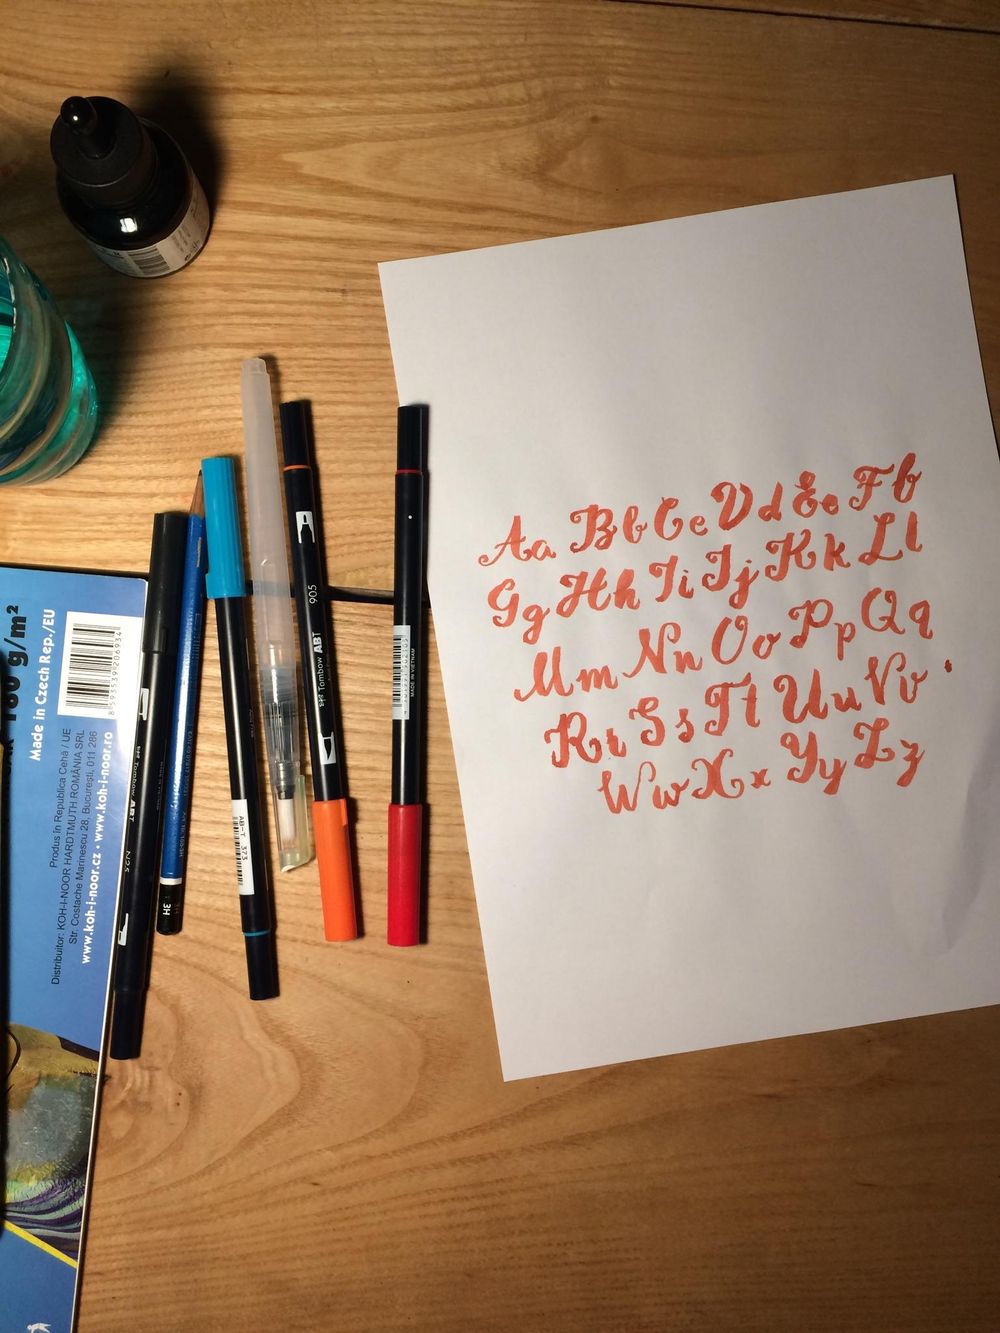 Aa Bb Cc Dd Ee Ff
Gg Hh Ii Jj Kk Ll
Mm Nn Oo Pp Qq
Rr Ss Tt Uu Vv
Ww Xx Yy Zz
160 g/m²
Made in Czech Rep./EU
8593539206934
Produs în Republica Cehă / UE
Distribuitor: KOH-I-NOOR HARDTMUTH ROMÂNIA SRL
Str. Costache Marinescu 28, București, 011 286
www.koh-i-noor.cz • www.koh-i-noor.ro
N25
3H
AB-T 373
905
Tombow ABT
MADE IN VIETNAM